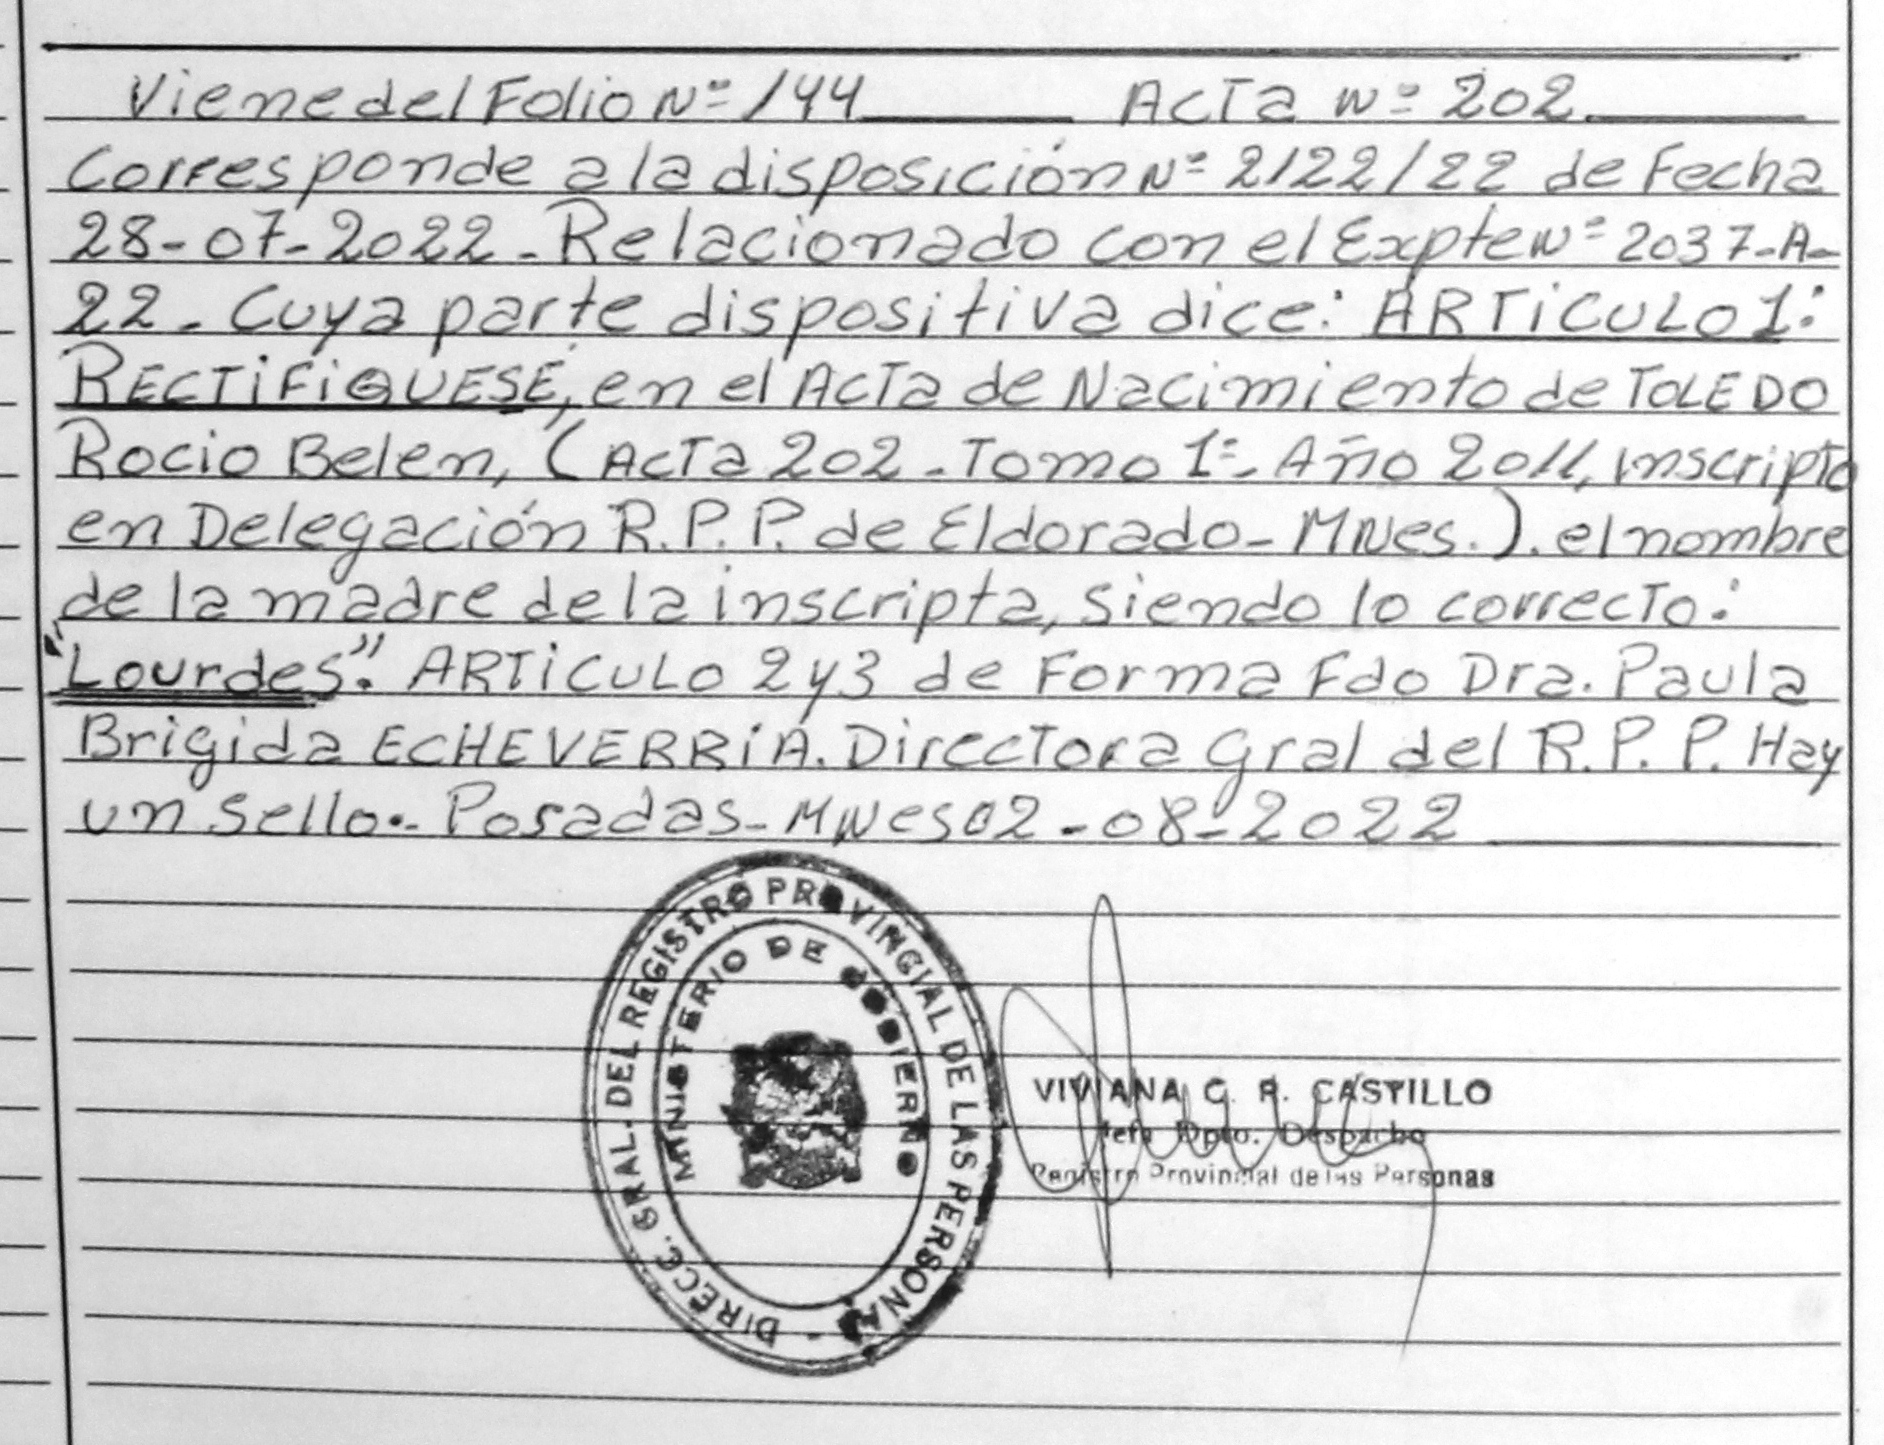 Viene del Folio Nº 144 Acta Nº 202
Corresponde a la disposición Nº 2122/22 de Fecha
28-07-2022. Relacionado con el Expte Nº 2037-A-
22. Cuya parte dispositiva dice: ARTiCULO 1:
RECTiFiQUESE, en el Acta de Nacimiento de TOLEDO
Rocio Belen, (Acta 202 - Tomo 1º - Año 2011, inscripta
en Delegación R.P.P. de Eldorado - MNes.). el nombre
de la madre de la inscripta, siendo lo correcto:
"Lourdes". ARTiCULO 2 y 3 de Forma Fdo Dra. Paula
Brigida ECHEVERRiA. Directora Gral del R.P.P. Hay
un sello.- Posadas - MNes 02-08-2022
DIRECC. GRAL. DEL REGISTRO PROVINCIAL DE LAS PERSONAS -
MINISTERIO DE GOBIERNO
VIVIANA C. R. CASTILLO
Jefa Dpto. Despacho
Registro Provincial de las Personas